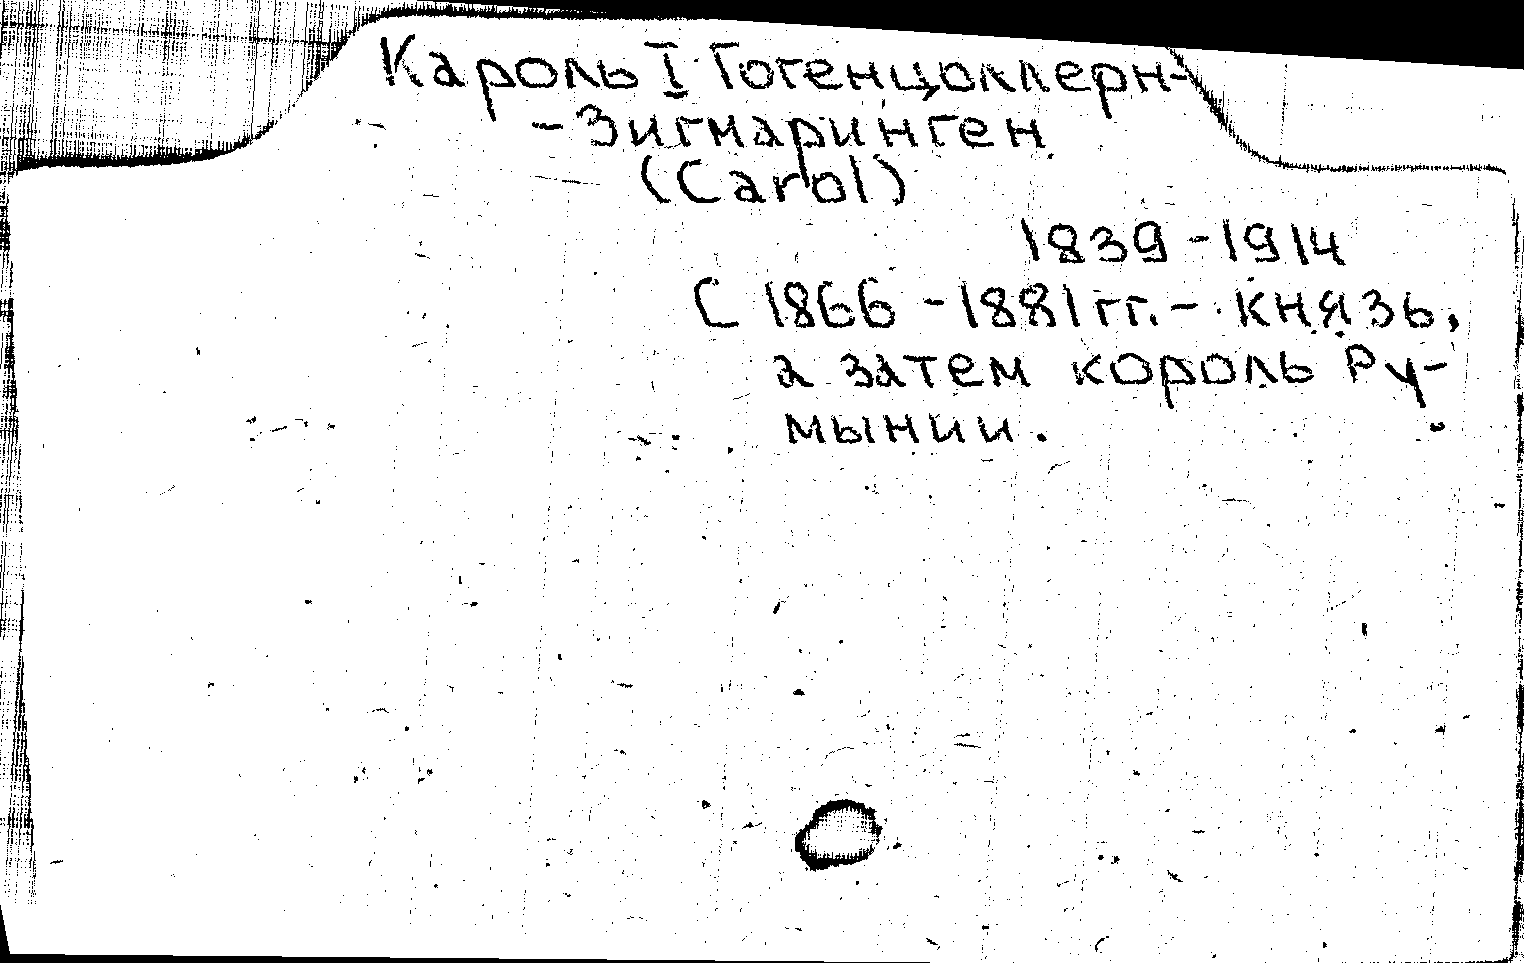 Кароль I Гогенцоллерн-
-Зигмаринген
(Carol)
1839-1914
С 1866-1881 гг. - князь,
а затем король Ру-
мынии.